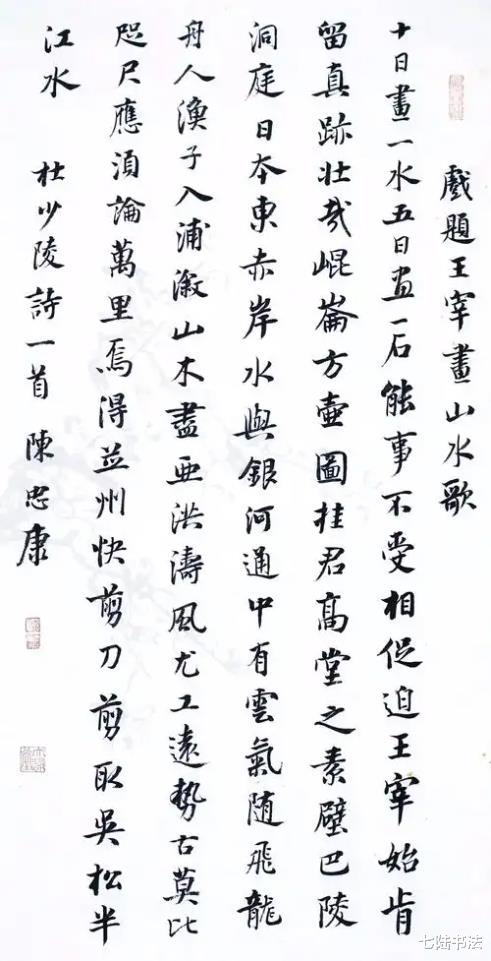 戲題王宰畫山水歌
十日畫一水五日畫一石能事不受相促迫王宰始肯
留真跡壯哉崐崙方壺圖挂君高堂之素壁巴陵
洞庭日本東赤岸水與銀河通中有雲氣随飛龍
舟人漁子入浦溆山木盡亞洪濤風尤工遠勢古莫比
咫尺應須論萬里焉得并州快剪刀剪取吳松半
江水
杜少陵詩一首 陳忠康
七陆书法